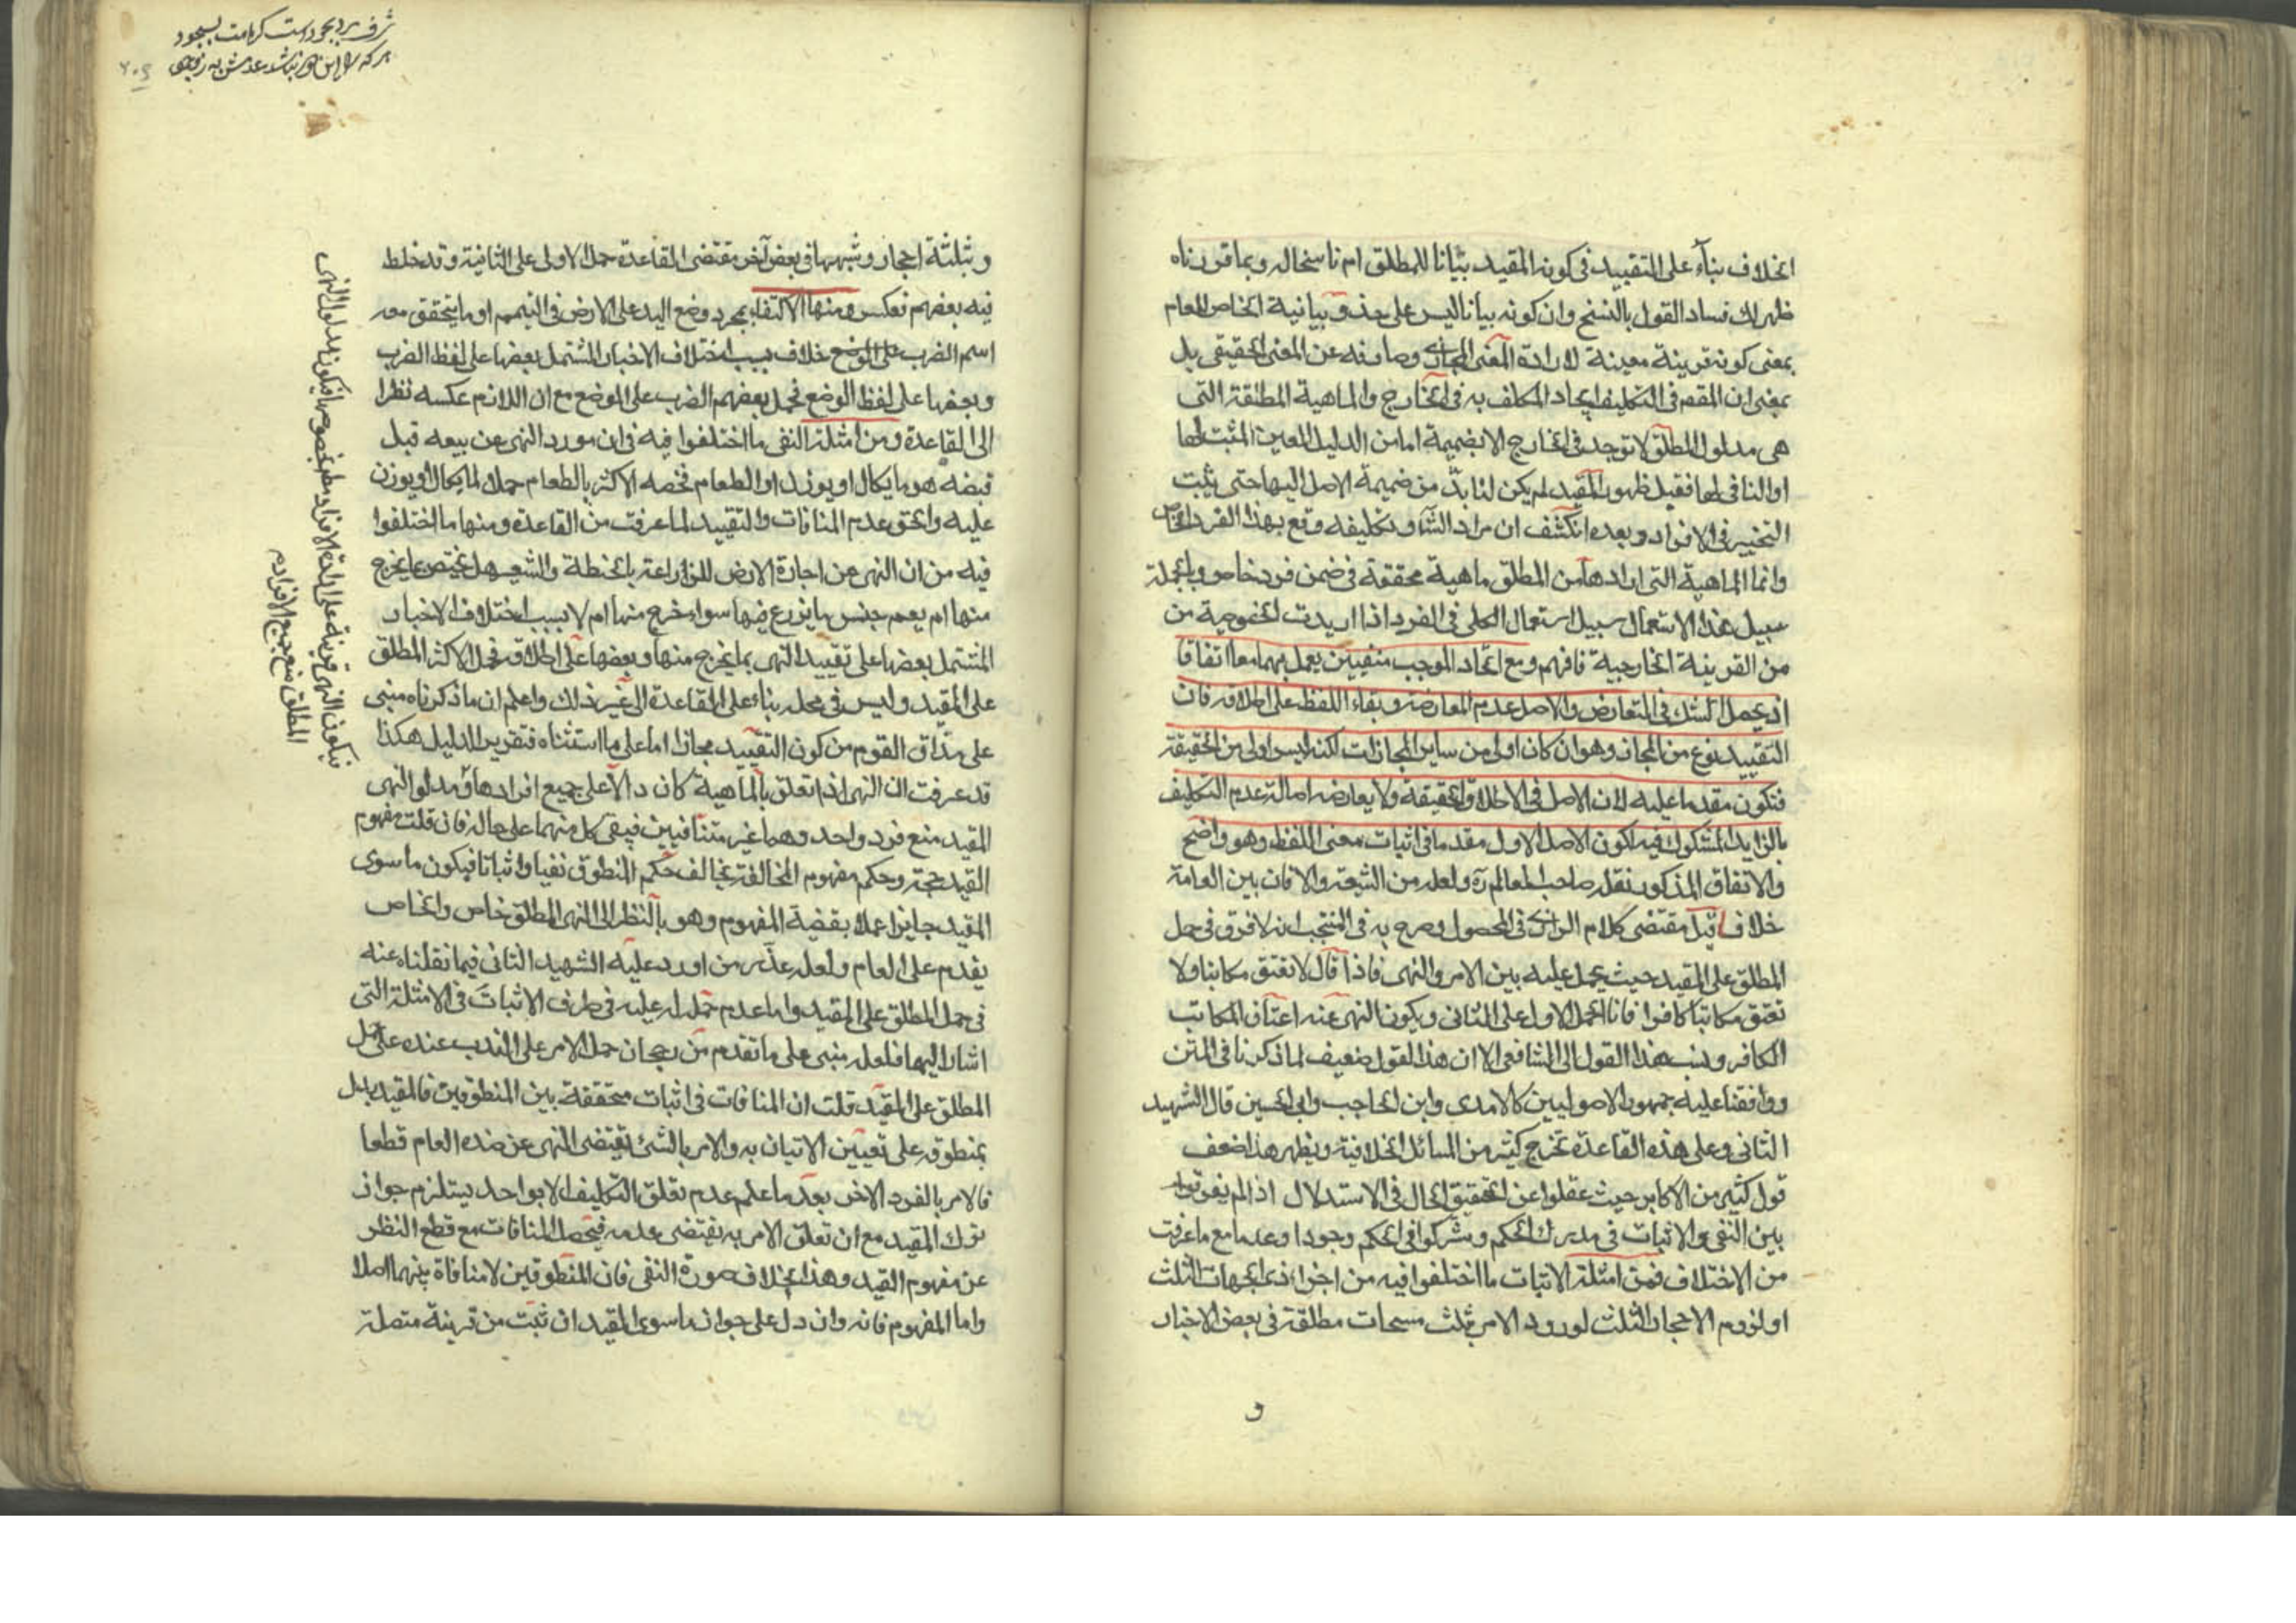 الخلاف بناء على التقييد في كونه المقيد بيانا للمطلق ام ناسخا له وبما قررناه
ظهر لك فساد القول بالنسخ وان كونه بيانا ليس على حذو بيانية الخاص للعام
بمعنى كونه قرينة معينة لارادة المعنى المجازي وصارفه عن المعنى الحقيقي بل
بمعنى ان المقص في التكليف ايجاد المكلف به في الخارج والماهية المطلقة التي
هي مدلول المطلق لا توجد في الخارج الا بضميمة اما من الدليل المعين المثبت لها
او النافي لها فقبل ظهور المقيد لم يكن لنا بد من ضميمة الاصل اليها حتى يثبت
التخيير في الافراد وبعده انكشف ان مراد الشا وتكليفه وقع بهذا الفرد الخاص
وانما الماهية التي ارادها من المطلق ماهية محققة في ضمن فرد خاص وبالجملة
سبيل هذا الاستعمال سبيل استعمال الكلي في الفرد اذا اريدت الخصوصية من
من القرينة الخارجية فافهم ومع اتحاد الموجب منفيين يعمل بهما معا اتفاقا
اذ يحصل الشك في التعارض والاصل عدم المعارضة وبقاء اللفظ على اطلاقه فان
التقييد نوع من المجاز وهو ان كان اولى من ساير المجازات لكنه ليس اولى من الحقيقة
فتكون مقدما عليه لان الاصل في الاطلاق الحقيقة ولا يعارضه اصالة عدم التكليف
بالزايد المشكوك فيه لكون الاصل الاول مقدما في اثبات معنى اللفظ وهو واضح
والاتفاق المذكور نقله صاحب المعالم ره ولعله من الشيعة والا فان بين العامة
خلافا قيل مقتضى كلام الرازي في المحصول وصرح به في المنتخب انه لا فرق في حمل
المطلق على المقيد حيث يحمل عليه بين الامر والنهي فاذا قال لا تعتق مكاتبا ولا
تعتق مكاتبا كافرا فانا نحمل الاول على الثاني ويكون النهي عنه اعتاق المكاتب
الكافر ونسب هذا القول الى الشافعي الا ان هذا القول ضعيف لما ذكرنا في المتن
ووافقنا عليه جمهور الاصوليين كالامدي وابن الحاجب وابي الحسين قال الشهيد
الثاني وعلى هذه القاعدة تخرج كثير من المسائل الخلافية ويظهر هذا ضعف
قول كثير من الاكابر حيث غفلوا عن تحقيق الحال في الاستدلال اذ لم يفرقوا
بين النفي والاثبات في مدرك الحكم وشركوا في الحكم وجودا وعدما مع ما عرفت
من الاختلاف فمن امثلة الاثبات ما اختلفوا فيه من اجزاء ذي الجهات الثلث
او لزوم الاحجار الثلث لورود الامر بثلث مسحات مطلقة في بعض الاخبار
و
وبثلثة احجار وشبهها في بعض آخر مقتضى القاعدة حمل الاولى على الثانية وقد خلط
فيه بعضهم فعكس ومنها الاكتفاء بمجرد وضع اليد على الارض في التيمم او ما يتحقق معه
اسم الضرب على الوضع خلاف بسبب اختلاف الاخبار المشتمل بعضها على لفظ الضرب
وبعضها على لفظ الوضع فحمل بعضهم الضرب على الوضع مع ان اللازم عكسه نظرا
الى القاعدة ومن امثلة النفي ما اختلفوا فيه في ان مورد النهي عن بيعه قبل
قبضه هو ما يكال او يوزن او الطعام فخصه الاكثر بالطعام حملا لما يكال او يوزن
عليه والحق عدم المنافات والتقييد لما عرفت من القاعدة ومنها ما اختلفوا
فيه من ان النهي عن اجارة الارض للزراعة بالحنطة والشعير هل يختص بما يخرج
منها ام يعم جنس ما يزرع فيها سواء خرج منها ام لا بسبب اختلاف الاخبار
المشتمل بعضها على تقييد النهي بما يخرج منها وبعضها على اطلاقه فحمل الاكثر المطلق
على المقيد وليس في محله بناء على القاعدة الى غير ذلك واعلم ان ما ذكرناه مبني
على مذاق القوم من كون التقييد مجازا اما على ما استثناه فتقرير الدليل هكذا
قد عرفت ان النهي اذا تعلق بالماهية كان دالا على جميع افرادها ومدلول النهي
المقيد منع فرد واحد وهما غير متنافيين فيبقى كل منهما على حاله فان قلت مفهوم
القيد حجة وحكم مفهوم المخالفة يخالف حكم المنطوق نفيا واثباتا فيكون ما سوى
المقيد جايزا عملا بقضية المفهوم وهو بالنظر الى النهي المطلق خاص والخاص
يقدم على العام ولعله عذر من اورد عليه الشهيد الثاني فيما نقلناه عنه
في حمل المطلق على المقيد واما عدم حمله عليه في طرف الاثبات في الامثلة التي
اشار اليها فلعله مبني على ما تقدم من رجحان حمل الامر على الندب عنده على حمل
المطلق على المقيد قلت ان المنافات في اثبات متحققة بين المنطوقين فالمقيد يدل
بمنطوقه على تعيين الاتيان به والامر بالشئ يقتضي النهي عن ضده العام قطعا
فالامر بالفرد الاخر بعد ما علم عدم تعلق التكليف الا بواحد يستلزم جواز
ترك المقيد مع ان تعلق الامر به يقتضى عدمه فيحصل المنافات مع قطع النظر
عن مفهوم القيد وهذا بخلاف صورة النفي فان المنطوقين لا منافاة بينهما اصلا
واما المفهوم فانه وان دل على جواز ما سوى المقيد ان ثبت من قرينة متصلة
فيكون النهي قرينة على ارادة الافراد مطـ بخصوصها فيكون مدلول النهي
المطلق منع جميع الافراد م
شرف مرد بجود است كرامت بسجود
هر كه اين هر نباشد عدمش به ز وجود